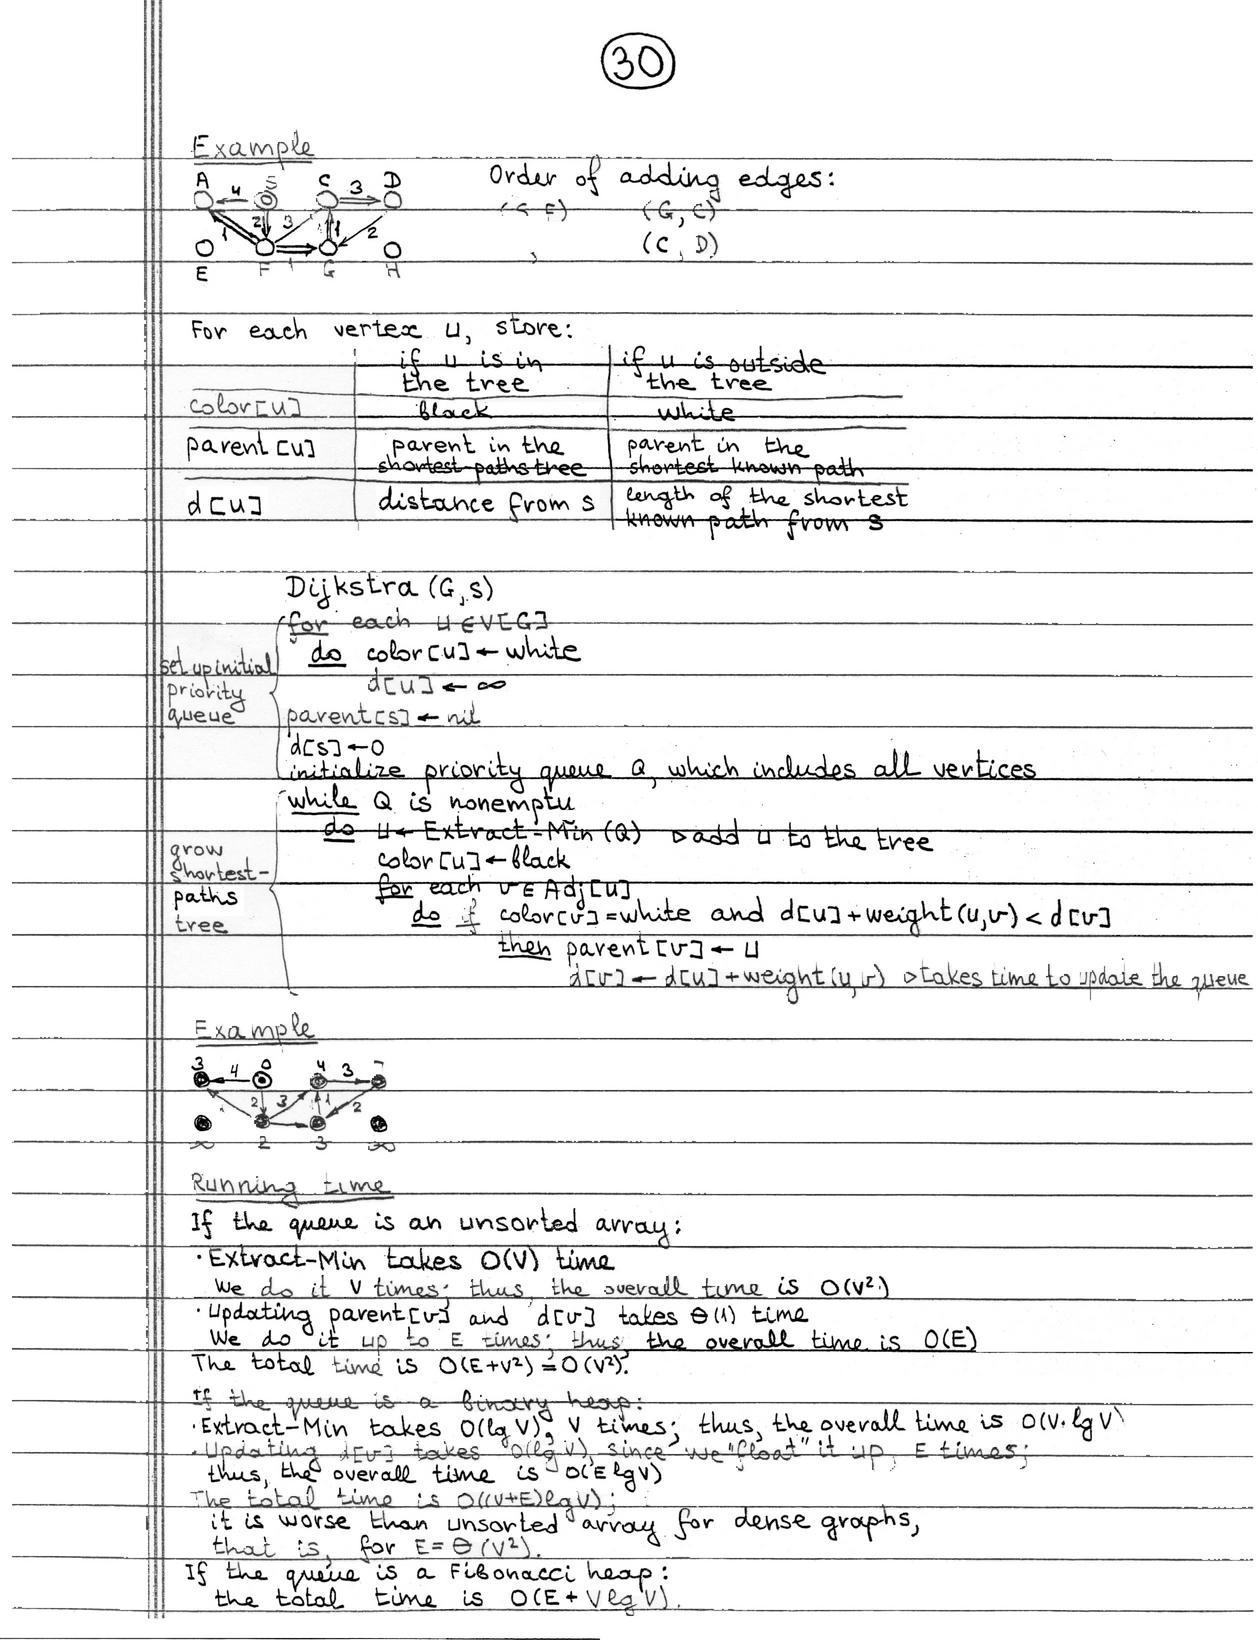 30
Example
A 4 S C 3 D
Order of adding edges:
1 2 3 1 2
(G, C)
(C, D)
E F 1 G H
For each vertex u, store:
if u is in the tree
if u is outside the tree
color[u] black white
parent[u] parent in the shortest-paths tree
parent in the shortest known path
d[u] distance from s
length of the shortest known path from s
Dijkstra (G,s)
for each u∈V[G]
do color[u]←white
d[u]←∞
set up initial priority queue
parent[s]←nil
d[s]←0
initialize priority queue Q, which includes all vertices
while Q is nonempty
do u← Extract-Min (Q) ▹add u to the tree
color[u]←black
grow shortest-paths tree
for each v∈Adj[u]
do if color[v]=white and d[u]+weight(u,v) < d[v]
then parent[v]← u
d[v]← d[u]+weight(u,v) ▹takes time to update the queue
Example
3 4 0 4 3
2 3 1 2
∞ 2 3 ∞
Running time
If the queue is an unsorted array:
·Extract-Min takes O(V) time
We do it V times; thus, the overall time is O(V²)
·Updating parent[v] and d[v] takes Θ(1) time
We do it up to E times; thus, the overall time is O(E)
The total time is O(E+V²)=O(V²).
If the queue is a binary heap:
·Extract-Min takes O(lg V), V times; thus, the overall time is O(V·lg V)
·Updating d[v] takes O(lg V), since we "float" it up, E times;
thus, the overall time is O(E lg V)
The total time is O((V+E)lg V);
it is worse than unsorted array for dense graphs,
that is, for E= Θ(V²).
If the queue is a Fibonacci heap:
the total time is O(E + V lg V).